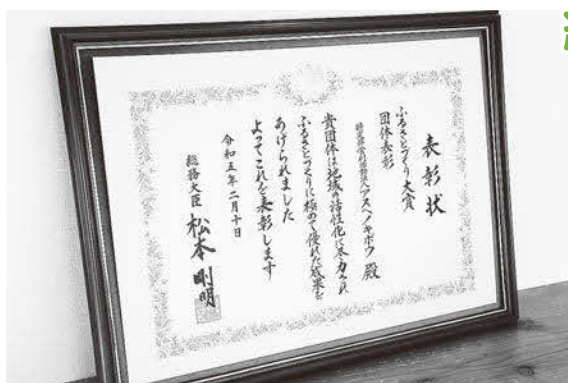 表彰状
ふるさとづくり大賞
団体表彰
特定非営利活動法人アスヘノキボウ 殿
貴団体は地域の活性化に尽力され
ふるさとづくりに極めて優れた成果を
あげられました
よってこれを表彰します
令和五年二月十日
総務大臣 松本剛明